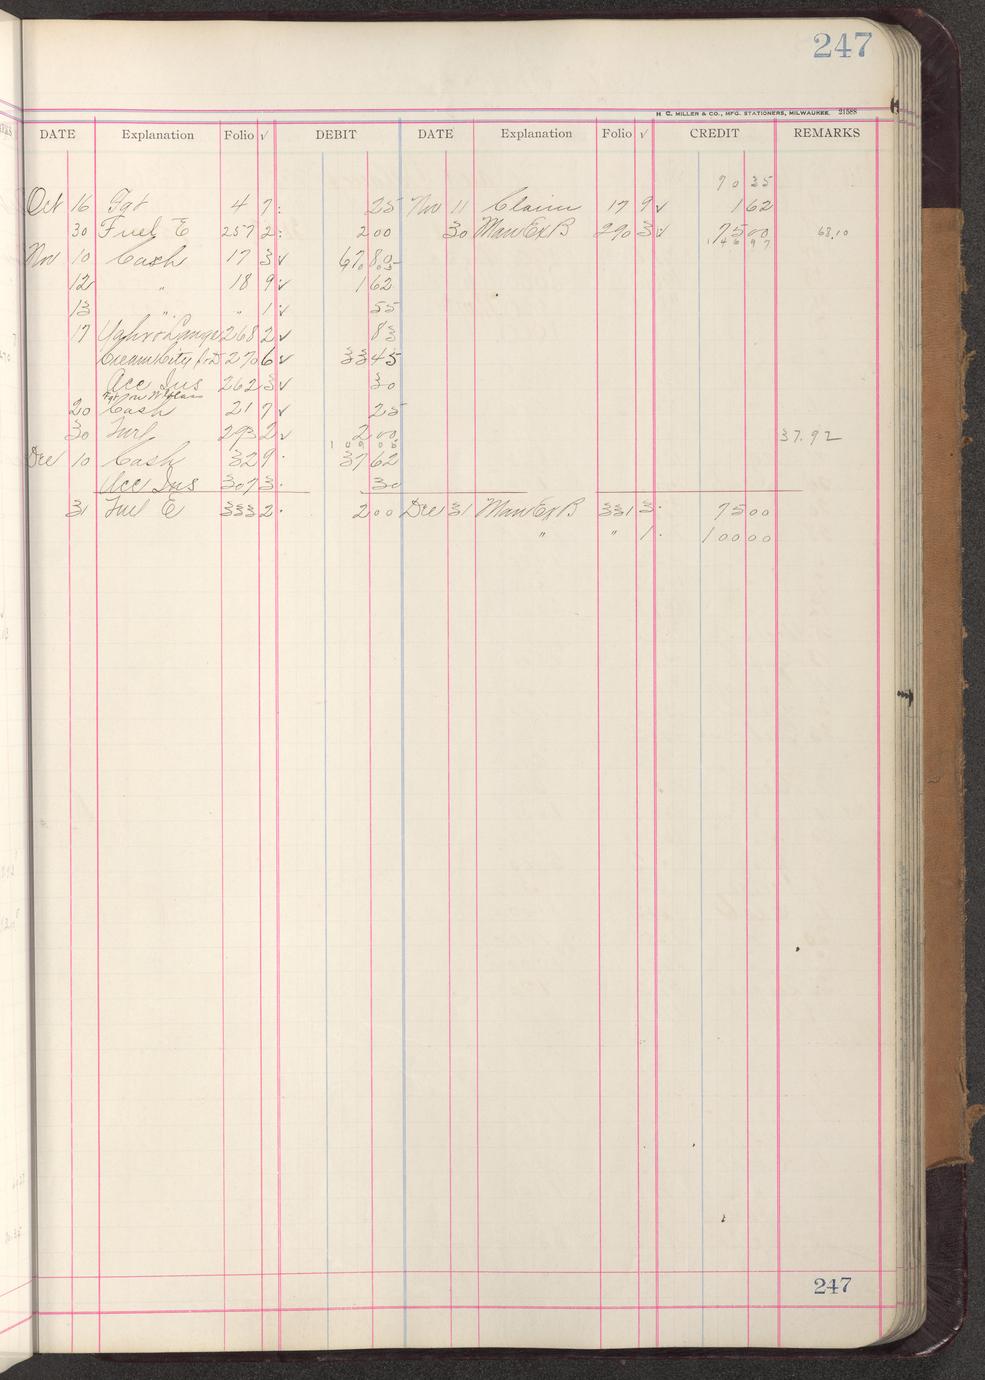 247
H. C. MILLER & CO., MFG. STATIONERS, MILWAUKEE. 21588
DATE Explanation Folio √ DEBIT DATE Explanation Folio √ CREDIT REMARKS
70 35
Oct 16 Fgt 47 25 Nov 11 Claim 179 √ 1 62
30 Fuel E 2572 2 00 30 Man Ex B 2903 √ 75 00 68.10
146 97
Nov 10 Cash 173 √ 67 80
12 " 189 √ 1 62
13 " " 1 √ 55
17 2682 √ 83
Cream City 2706 √ 33 45
Acc Ins 2623 √ 30
20 Cash 217 √ 25
30 Fuel 2932 √ 2 00 37.92
Dec 10 Cash 329 37 62
Acc Ins 3073 30
31 Fuel E 3332 2 00 Dec 31 Man Ex B 3313 75 00
" " 1 100 00
247